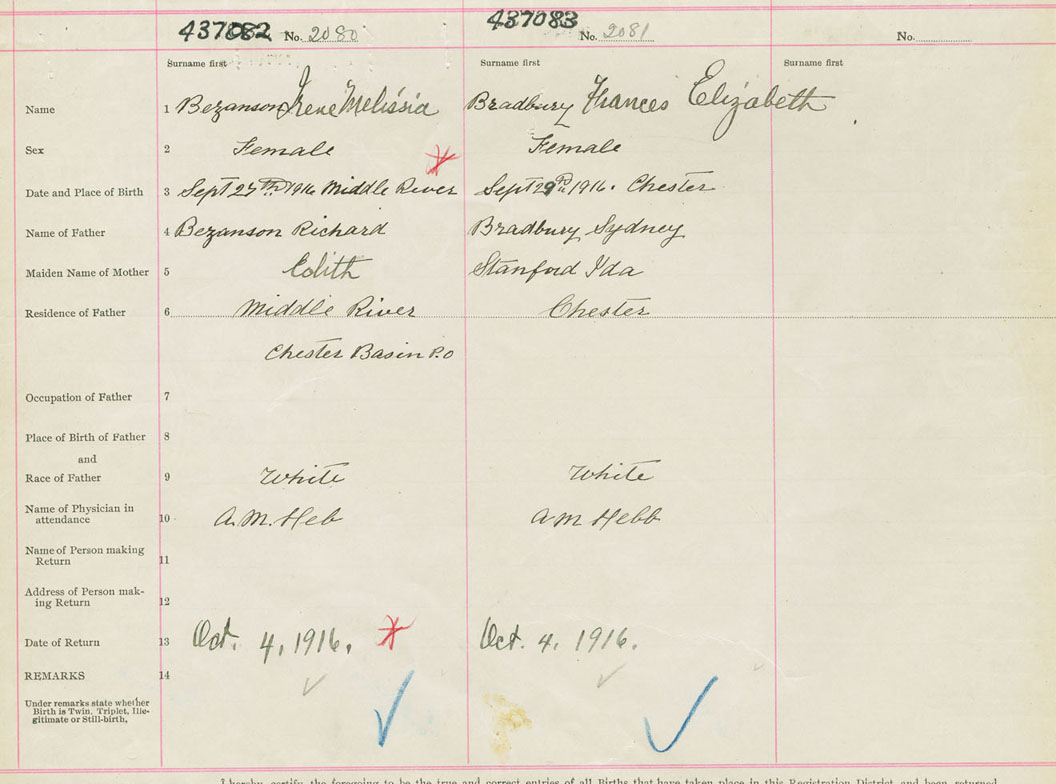 437082 No. 2080 437083 No. 2081 No.
Surname first Surname first Surname first
Name 1 Bezanson Irene Melissia Bradbury Frances Elizabeth
Sex 2 Female Female
Date and Place of Birth 3 Sept 27th 1916 Middle River Sept 29 1916. Chester
Name of Father 4 Bezanson Richard Bradbury Sydney
Maiden Name of Mother 5 Edith Stanford Ida
Residence of Father 6 Middle River Chester
Chester Basin P.O
Occupation of Father 7
Place of Birth of Father 8
and
Race of Father 9 White White
Name of Physician in
attendance 10 A.M. Heb A M Hebb
Name of Person making
Return 11
Address of Person mak-
ing Return 12
Date of Return 13 Oct. 4, 1916. Oct. 4, 1916.
REMARKS 14
Under remarks state whether
Birth is Twin, Triplet, Ille-
gitimate or Still-birth,
I hereby certify the foregoing to be the true and correct entries of all Births that have taken place in this Registration District, and been returned